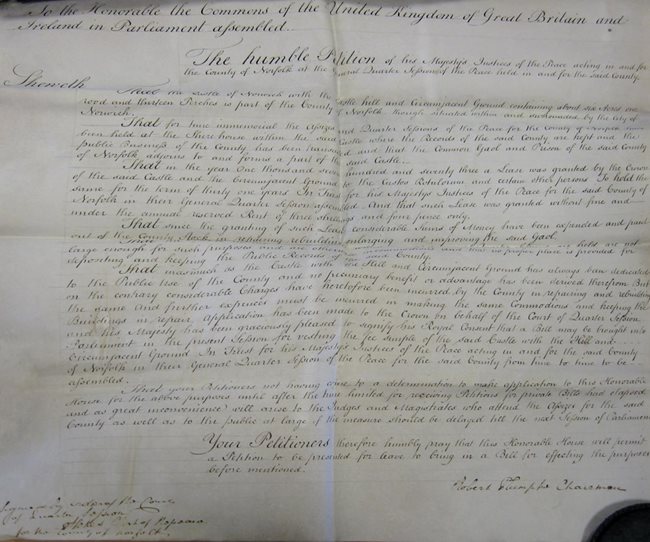 To the Honorable the Commons of the United Kingdom of Great Britain and
Ireland in Parliament assembled.
The humble Petition of his Majesty's Justices of the Peace acting in and for
the County of Norfolk at the General Quarter Session of the Peace held in and for the said County.
Sheweth
That the Castle of Norwich with the Castle hill and Circumjacent Ground containing about six Acres one
rood and thirteen Perches is part of the County of Norfolk though situated within and surrounded by the City of
Norwich.
That for time immemorial the Assizes and Quarter Sessions of the Peace for the County of Norfolk have
been held at the Shire house within the said Castle where the Records of the said County are kept and the
public Business of the County has been transacted and that the Common Gaol and Prison of the said County
of Norfolk adjoins to and forms a part of the said Castle.
That in the year One thousand seven hundred and seventy three a Lease was granted by the Crown
of the said Castle and the Circumjacent Ground to the Custos Rotulorum and certain other persons To hold the
same for the term of thirty one years In Trust for his Majesty's Justices of the Peace for the said County of
Norfolk in their General Quarter Session assembled And that such Lease was granted without fine and
under the annual reserved Rent of three shillings and four pence only.
That since the granting of such Lease considerable Sums of Money have been expended and paid
out of the County Stock in repairing rebuilding enlarging and improving the said Gaol
large enough for such purposes and are otherwise and that no proper place is provided for
depositing and keeping the Public Records of the said County.
That inasmuch as the Castle with the Hill and Circumjacent Ground has always been dedicated
to the Public Use of the County and no pecuniary benefit or advantage has been derived therefrom But
on the contrary considerable Charges have heretofore been incurred by the County in repairing and rebuilding
the same And further expences must be incurred in making the same Commodious and keeping the
Buildings in repair Application has been made to the Crown on behalf of the Court of Quarter Session
and his Majesty has been graciously pleased to signify his Royal Consent that a Bill may be brought into
Parliament in the present Session for vesting the fee simple of the said Castle with the Hill and
Circumjacent Ground In Trust for his Majesty's Justices of the Peace acting in and for the said County
of Norfolk in their General Quarter Session of the Peace for the said County from time to time to be
assembled.
That your Petitioners not having come to a determination to make application to this Honorable
House for the above purposes until after the time limited for receiving Petitions for private Bills had elapsed
and as great inconvenience will arise to the Judges and Magistrates who attend the Assizes for the said
County as well as to the public at large if the measure should be delayed till the next Session of Parliament
Your Petitioners therefore humbly pray that this Honorable House will permit
a Petition to be presented for leave to bring in a Bill for effecting the purposes
before mentioned.
Robert Plumptre Chairman
Signed by order of the Court
of Quarter Session
Clerk of the Peace
for the County of Norfolk